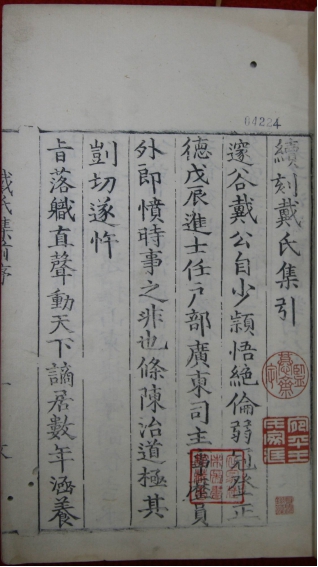 續刻戴氏集引
邃谷戴公自少穎悟絕倫弱冠登正
德戊辰進士任户部廣東司主事歷員
外即憤時事之非也條陳治道極其
剴切遂忤
旨落職直聲動天下謫居數年涵養
戴氏集序
04224